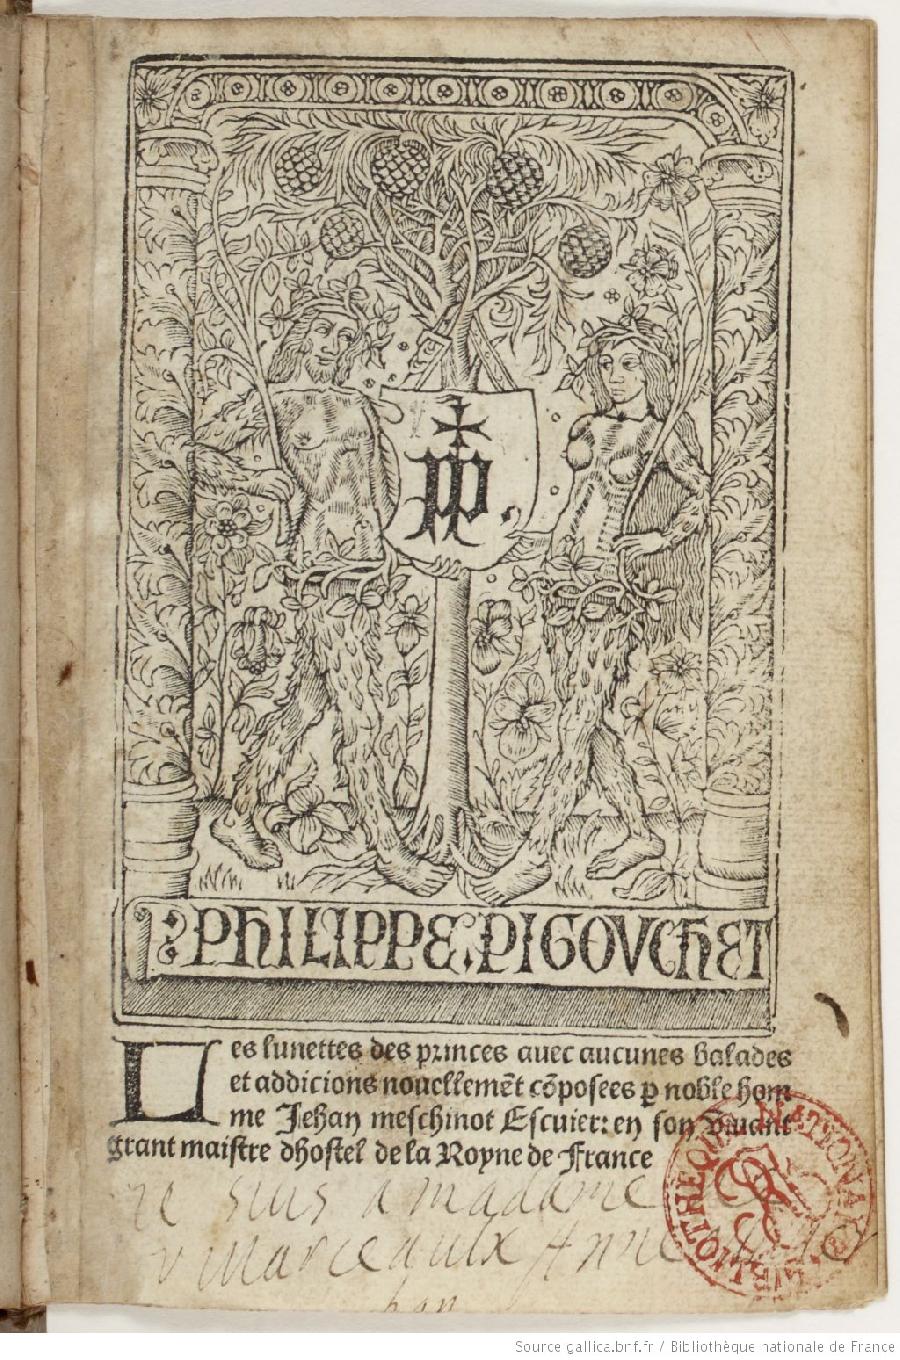 PP
PHILIPPE PIGOVCHET
Les lunettes des princes auec aucunes balades
et addicions nouellemẽt cõposees ꝑ noble hom
me Jehan meschinot Escuier: en son viuant
grant maistre dhostel de la Royne de France
je suis a madame
han
BIBLIOTHEQUE NATIONALE
R F
Source gallica.bnf.fr / Bibliothèque nationale de France